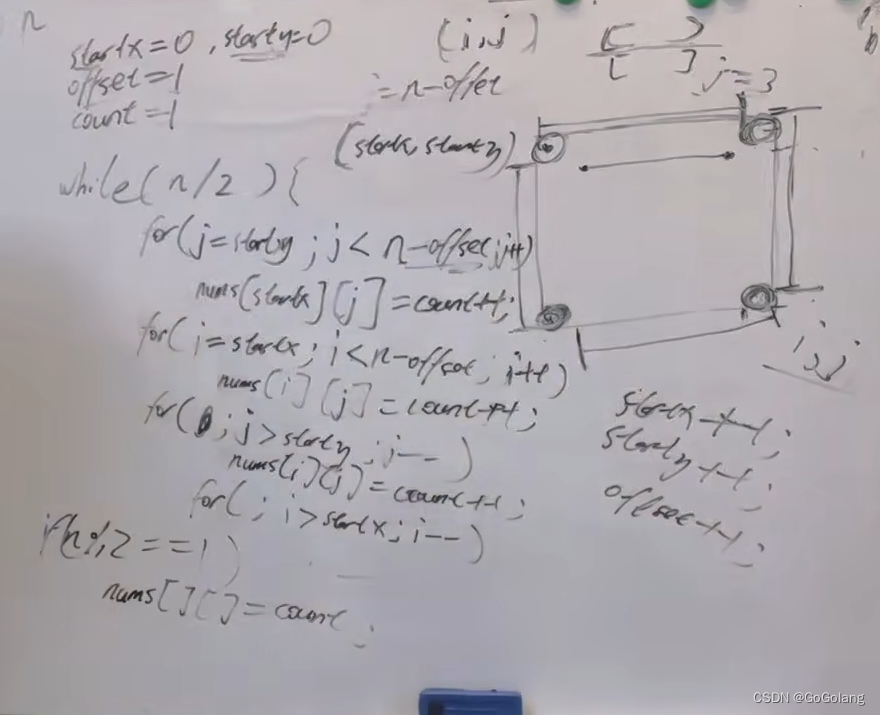 n
startx=0, starty=0
offset=1
count=1
(i,j)
=n-offset
[ )
[ ]
j=3
(startx, starty)
while(n/2){
for(j=starty;j<n-offset;j++)
nums[startx][j]=count++;
for(i=startx;i<n-offset;i++)
nums[i][j]=count++;
for(;j>starty;j--)
nums[i][j]=count++;
for(;i>startx;i--)
i,j
startx++;
starty++;
offset++;
if(n%2==1)
nums[][]=count;
CSDN @GoGolang